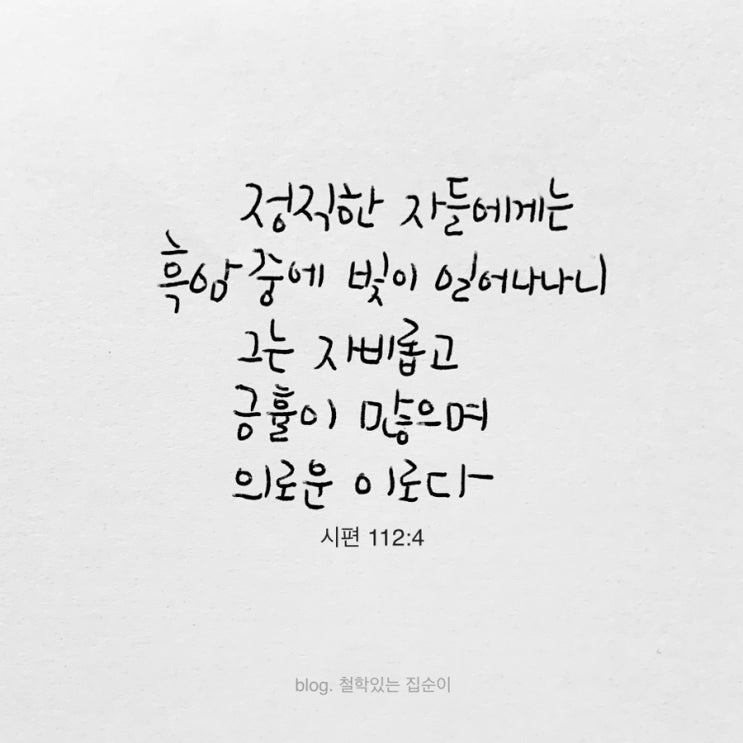 정직한 자들에게는
흑암 중에 빛이 일어나나니
그는 자비롭고
긍휼이 많으며
의로운 이로다
시편 112:4
blog. 철학있는 집순이